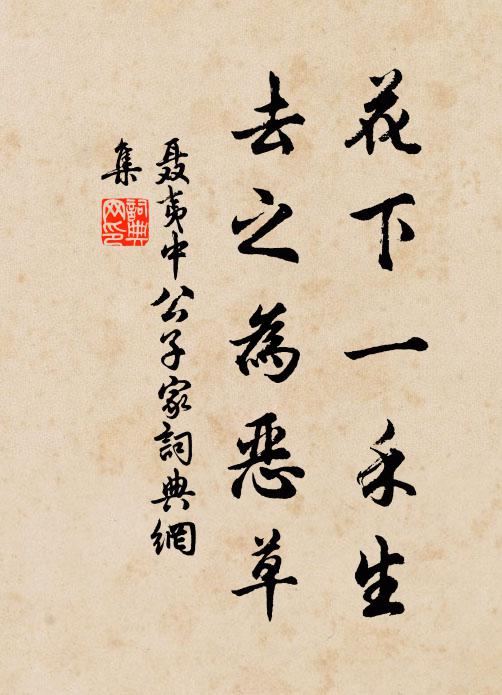 花下一禾生
去之為惡草
聂夷中公子家詞典網
集
詞典
网印